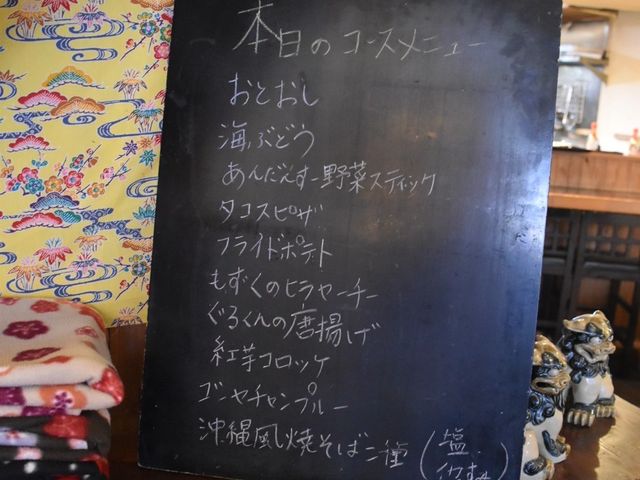 本日のコースメニュー
おとおし
海ぶどう
あんだんすー野菜スティック
タコスピザ
フライドポテト
もずくのヒラヤーチー
ぐるくんの唐揚げ
紅芋コロッケ
ゴーヤチャンプルー
沖縄風焼そば二種(塩